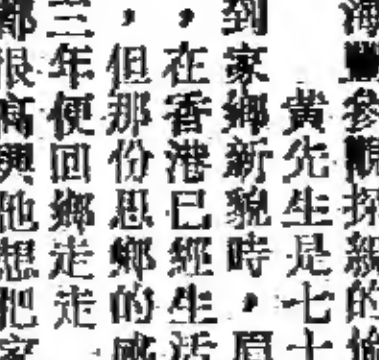 海豐參觀探親的
黃先生是七十
到家鄉新貌時，眉
，在香港已經生活
，但那份思鄉的感
三年便回鄉走走
都很高興他想把家